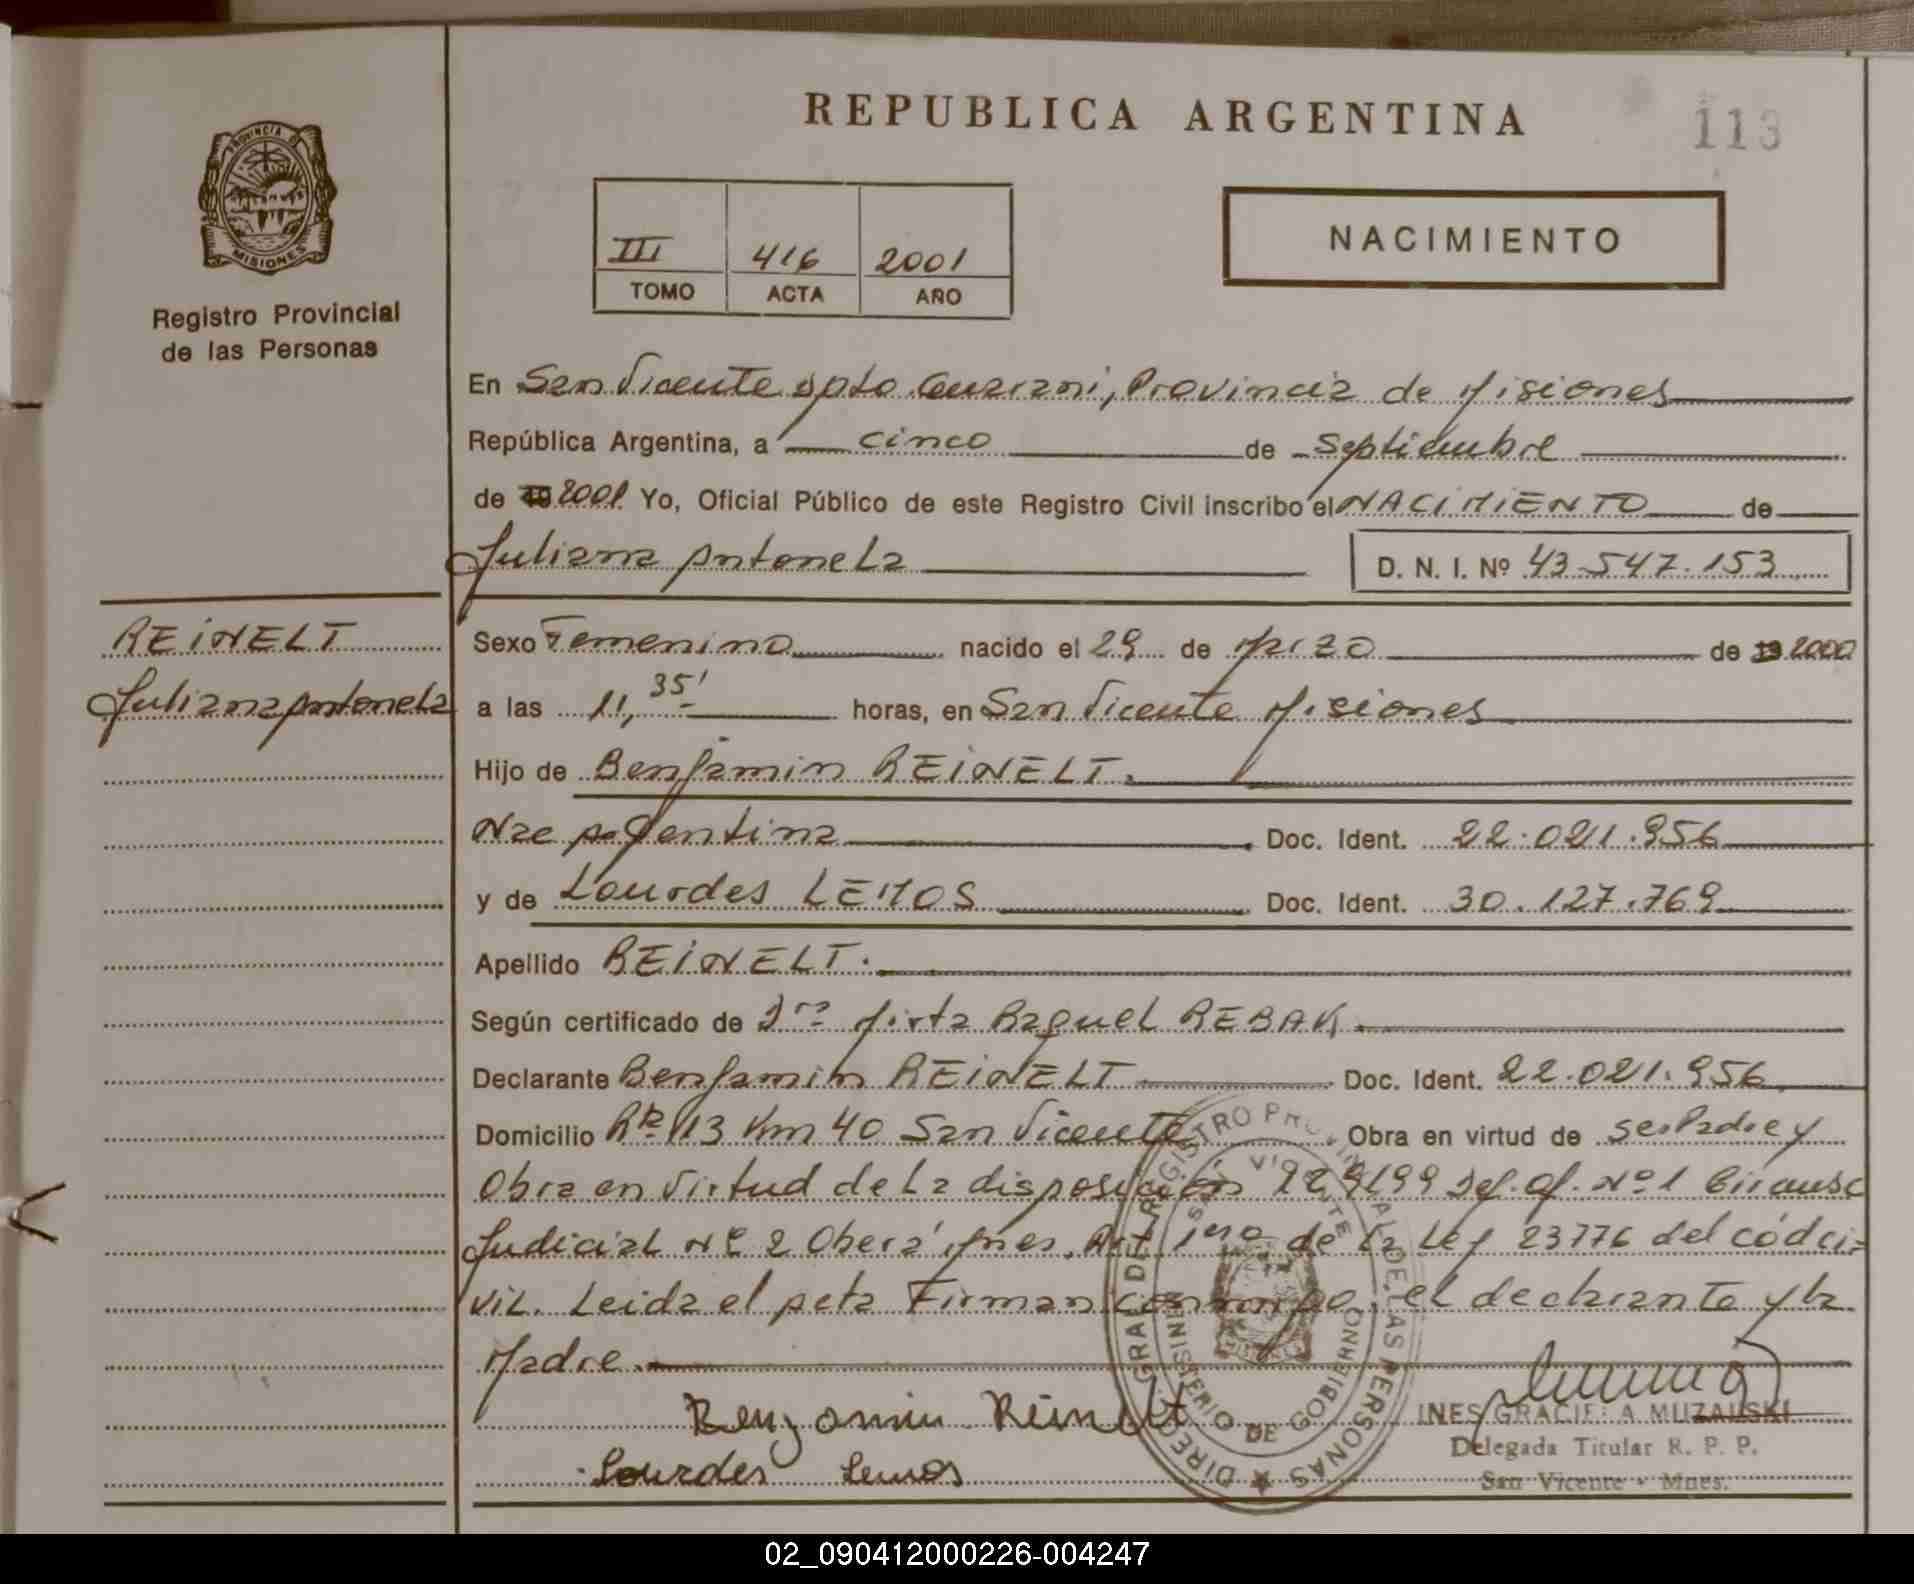 REPUBLICA ARGENTINA
113
PROVINCIA DE
MISIONES
Registro Provincial
de las Personas
III 416 2001
TOMO ACTA AÑO
NACIMIENTO
En San Vicente Dpto. Guarani, Provincia de Misiones
República Argentina, a cinco de Septiembre
de 19 2001 Yo, Oficial Público de este Registro Civil inscribo el NACIMIENTO de
Juliana Antonela D. N. I. Nº 43.547.153
REINELT
Juliana Antonela
Sexo Femenino nacido el 29 de Marzo de 19 2000
a las 11,35' horas, en San Vicente Misiones
Hijo de Benjamin REINELT.
Nac Argentina Doc. Ident. 22.021.956
y de Lourdes LEMOS Doc. Ident. 30.127.769
Apellido REINELT.
Según certificado de Dra Mirta Raquel REBAK
Declarante Benjamin REINELT Doc. Ident. 22.021.956
Domicilio 13 Km 40 San Vicente Obra en virtud de ser Padre y
Obra en virtud de la disposición 229/99 Def. Of. Nº 1 Circunsc
Judicial Nº 2 Oberá Mnes. Art. 1ero de la Ley 23776 del cód ci-
vil. Leida el Acta Firman conmigo, el declarante y la
Madre.
Benjamin Reinelt
Lourdes Lemos
INES GRACIELA MUZALSKI
Delegada Titular R. P. P.
San Vicente - Mnes.
DIREC. GRAL DEL REGISTRO PROVINCIAL DE LAS PERSONAS
SAN VICENTE
MINISTERIO DE GOBIERNO
02_090412000226-004247